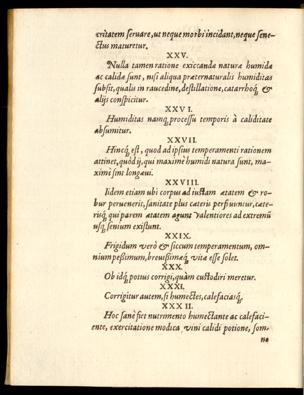 eritatem seruare, ut neque morbi incidant, neque sene-
ctus maturetur.
XXV.
Nulla tamen ratione exiccanda naturæ humidæ
ac calidæ sunt, nisi aliqua præternaturalis humiditas
subsit, qualis in raucedine, destillatione, catarrhoq́; &
alijs conspicitur.
XXVI.
Humiditas namq́; processu temporis à caliditate
absumitur.
XXVII.
Hincq́; est, quod ad ipsius temperamenti rationem
attinet, quòd ij, qui maximè humidi natura sunt, ma-
ximi sint longæui.
XXVIII.
Iidem etiam ubi corpus ad iustam ætatem & ro-
bur peruenerit, sanitate plus cæteris perfruuntur, cæte-
risq́; qui parem ætatem agunt valentiores ad extremũ
usq́; senium existunt.
XXIX.
Frigidum verò & siccum temperamentum, om-
nium pessimum, breuissimæq́; vitæ esse solet.
XXX.
Ob idq́; potius corrigi, quàm custodiri meretur.
XXXI.
Corrigitur autem, si humectes, calefaciasq́;.
XXXII.
Hoc sanè fiet nutrimento humectante ac calefaci-
ente, exercitatione modica vini calidi potione, som-
no